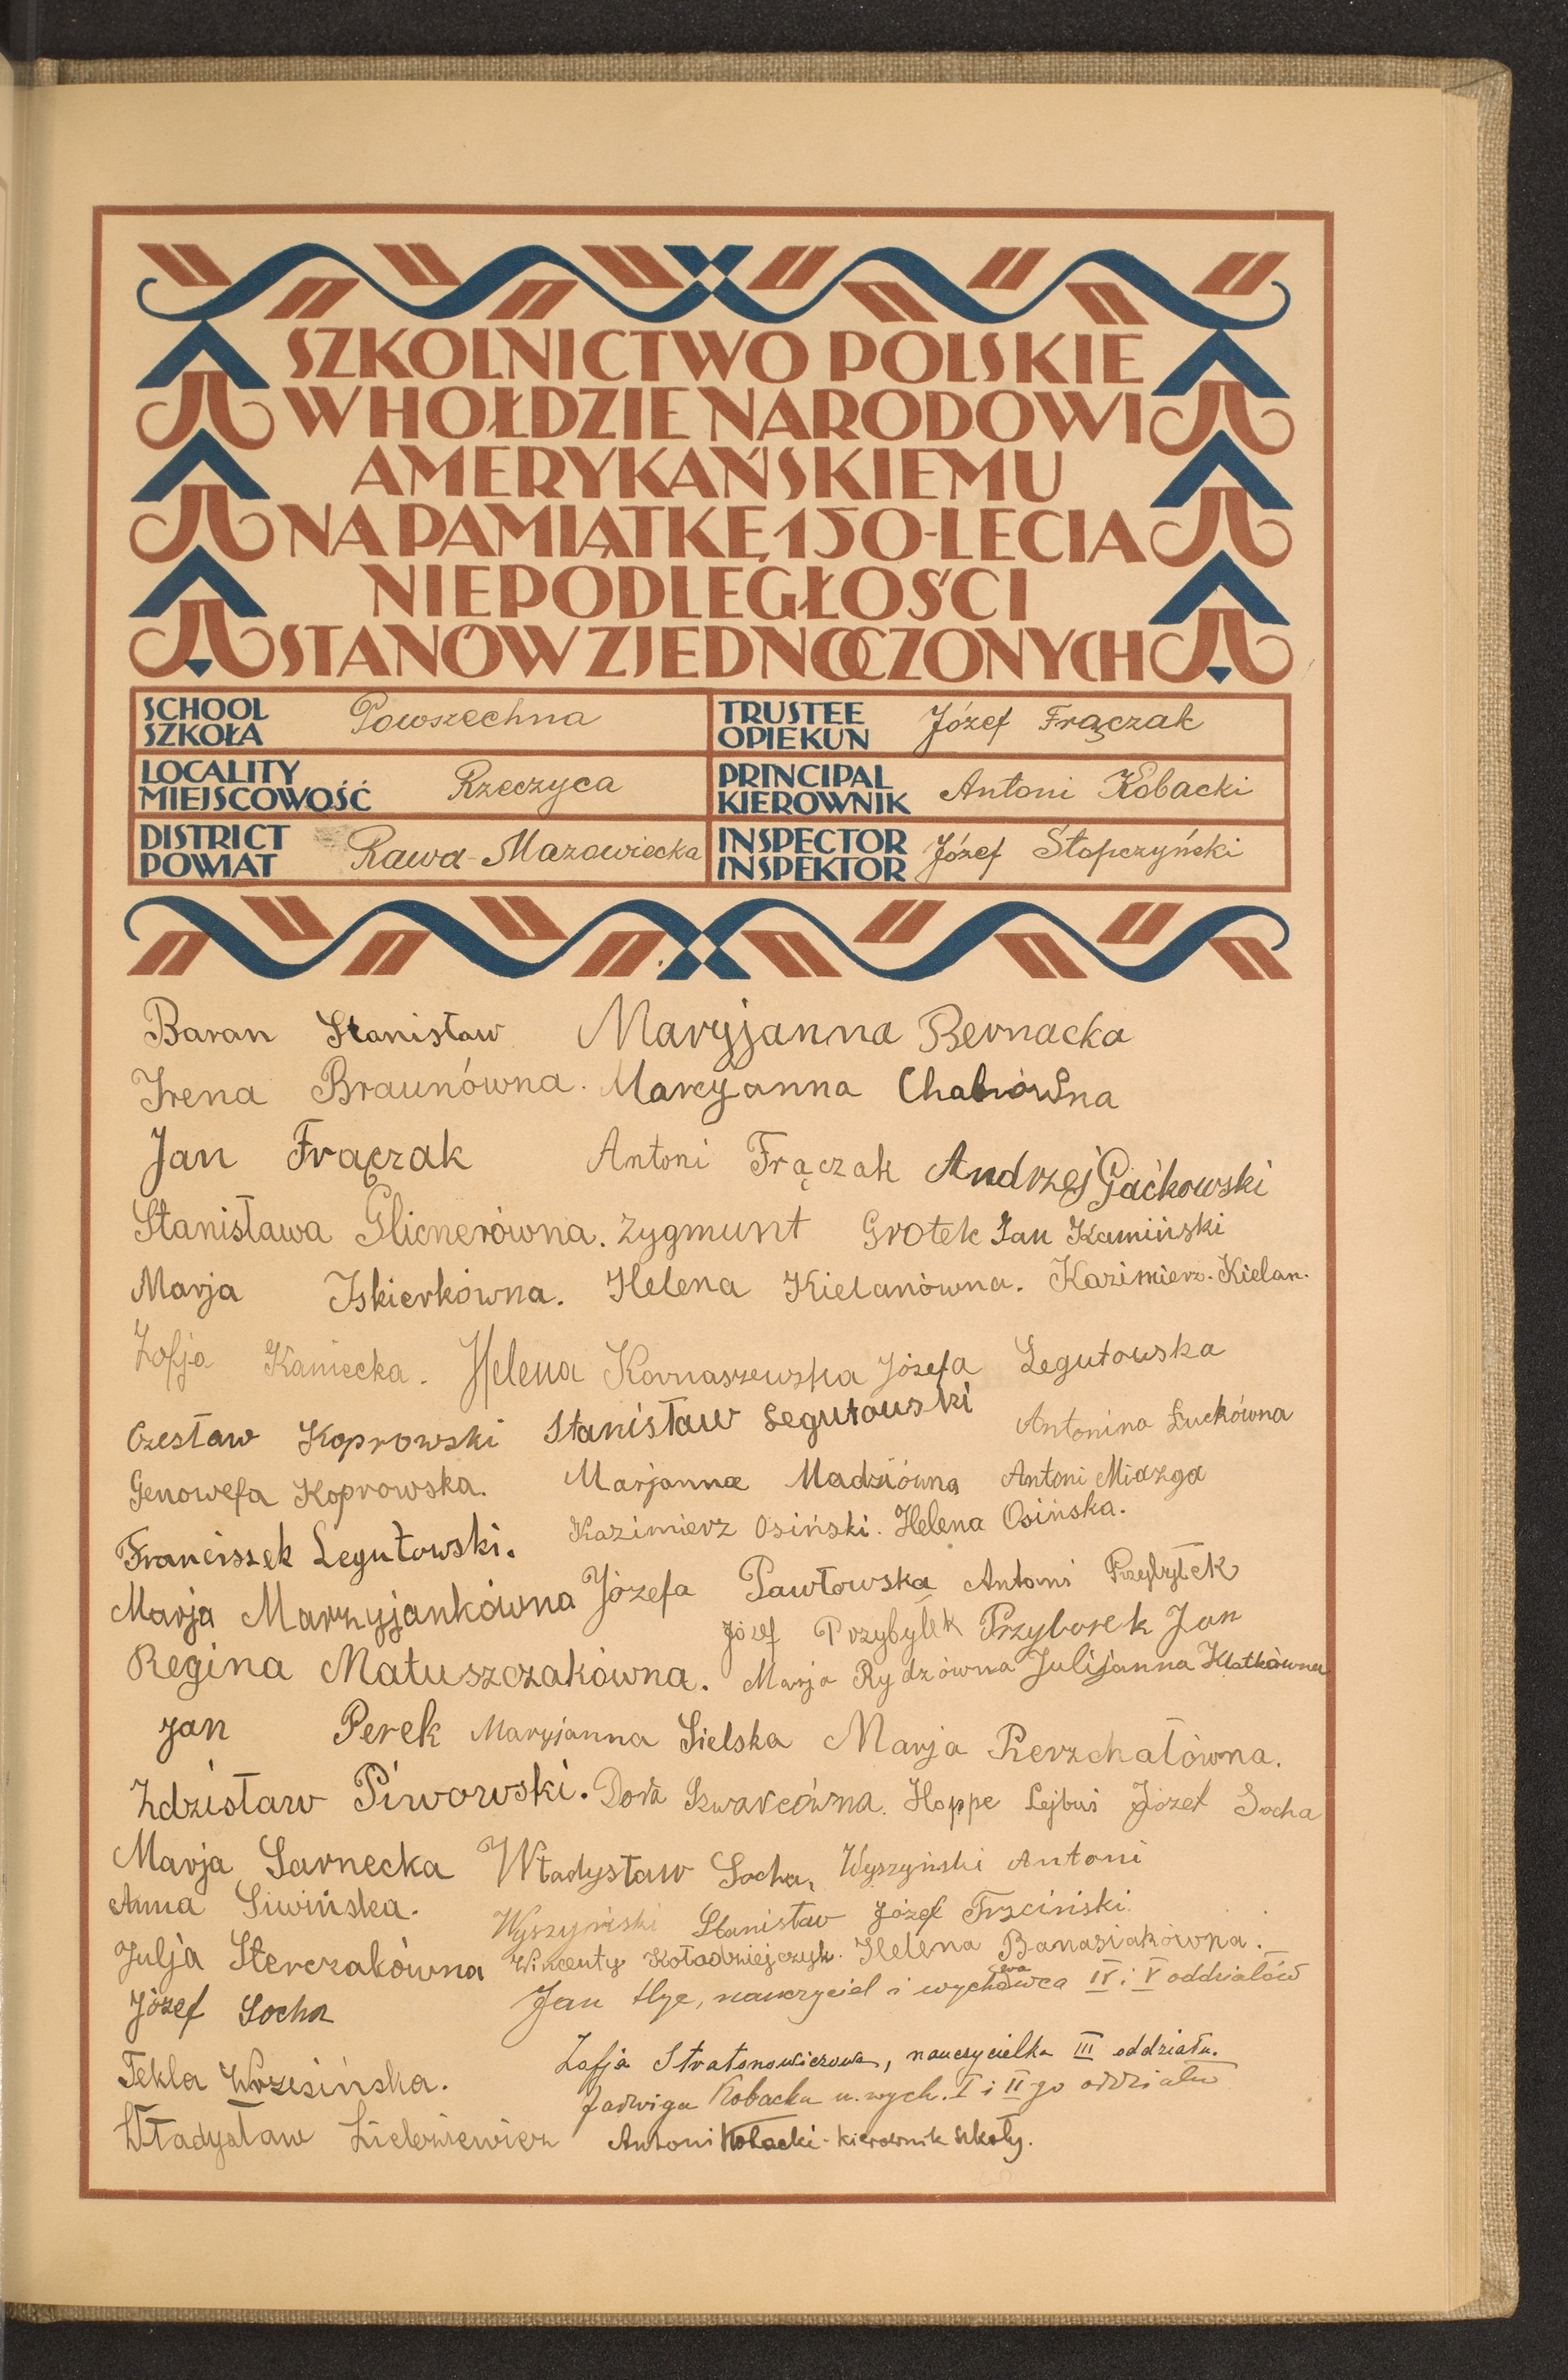 SZKOLNICTWO POLSKIE
W HOŁDZIE NARODOWI
AMERYKAŃSKIEMU
NA PAMIĄTKĘ 150-LECIA
NIEPODLEGŁOŚCI
STANÓW ZJEDNOCZONYCH
SCHOOL SZKOŁA Powszechna TRUSTEE OPIEKUN Józef Frączak
LOCALITY MIEJSCOWOŚĆ Rzeczyca PRINCIPAL KIEROWNIK Antoni Kobacki
DISTRICT POWIAT Rawa-Mazowiecka INSPECTOR INSPEKTOR Józef Stopczyński
Baran Stanisław Maryjanna Bernacka
Irena Braunówna. Maryjanna
Jan Frączak Antoni Frączak Andrzej Gaćkowski
Stanisława Glicnerówna. Zygmunt Grotek Jan Kamiński
Marja Iskierkówna. Helena Kielanówna. Kazimierz. Kielan.
Zofja Kaniecka. Helena Kornaszewska Józefa Legutowska
Czesław Koprowski Stanisław Legutowski Antonina Łuckówna
Genowefa Koprowska. Marjanna Madziówna Antoni Miazga
Franciszek Legutowski. Kazimierz Osiński. Helena Osińska.
Marja Marzyjankówna Józefa Pawłowska Antoni Przybyłek
Józef Przybyłek Przyborek Jan
Regina Matuszczakówna. Marja Rydzówna Julijanna Klatkówna
Jan Perek Maryjanna Sielska Marja Pierzchałówna.
Zdzisław Piworski. Dora Szwarcówna. Hoppe Lejbuś Józef Socha
Marja Sarnecka Władysław Socha, Wyszyński Antoni
Anna Siwińska. Wyszyński Stanisław Józef Trzciński
Julja Sterczakówna Wincenty Kołodziejczyk. Helena Banasiakówna.
Józef Socha Jan nauczyciel i wychowawca IV i V oddziałów
Zofja Stratonowiczowa, nauczycielka III oddziału.
Tekla Wrzesińska. Jadwiga Kobacka n. wych. I i II go oddziałów
Władysław Antoni Kobacki - kierownik szkoły.